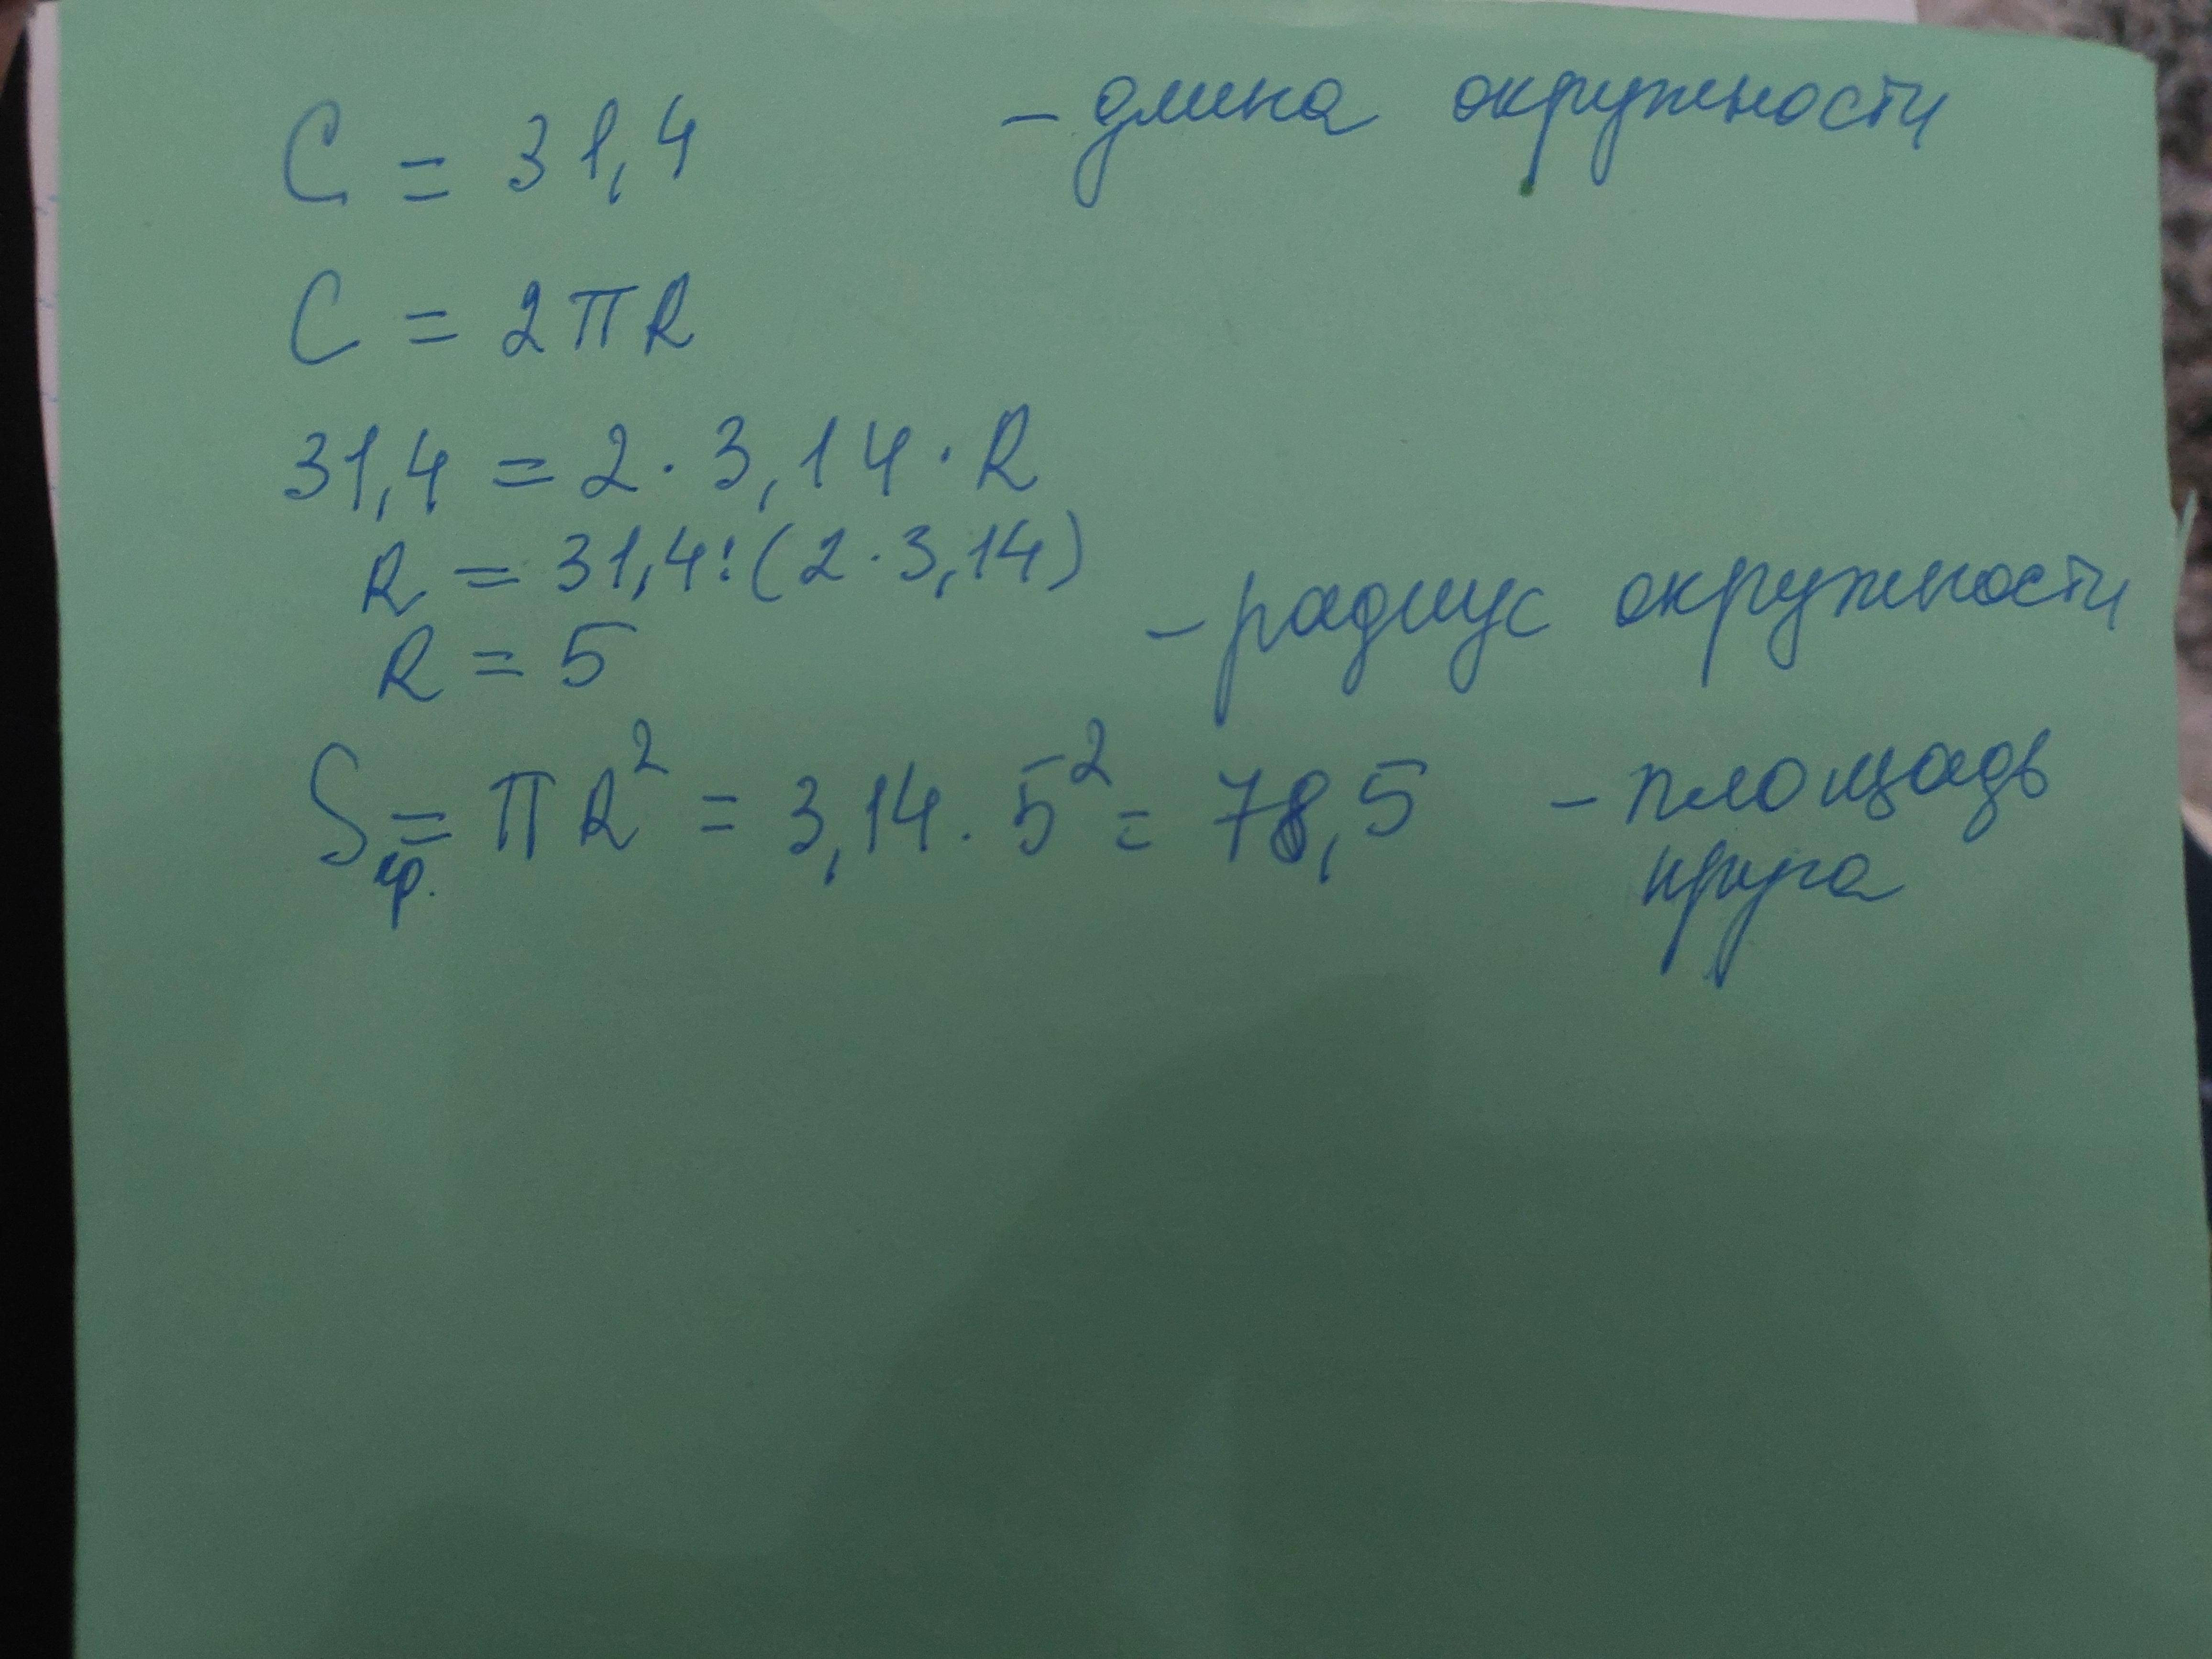 C = 31,4 - длина окружности
C = 2πR
31,4 = 2 · 3,14 · R
R = 31,4 : (2 · 3,14)
R = 5 - радиус окружности
Sкр. = πR² = 3,14 · 5² = 78,5 - площадь
круга